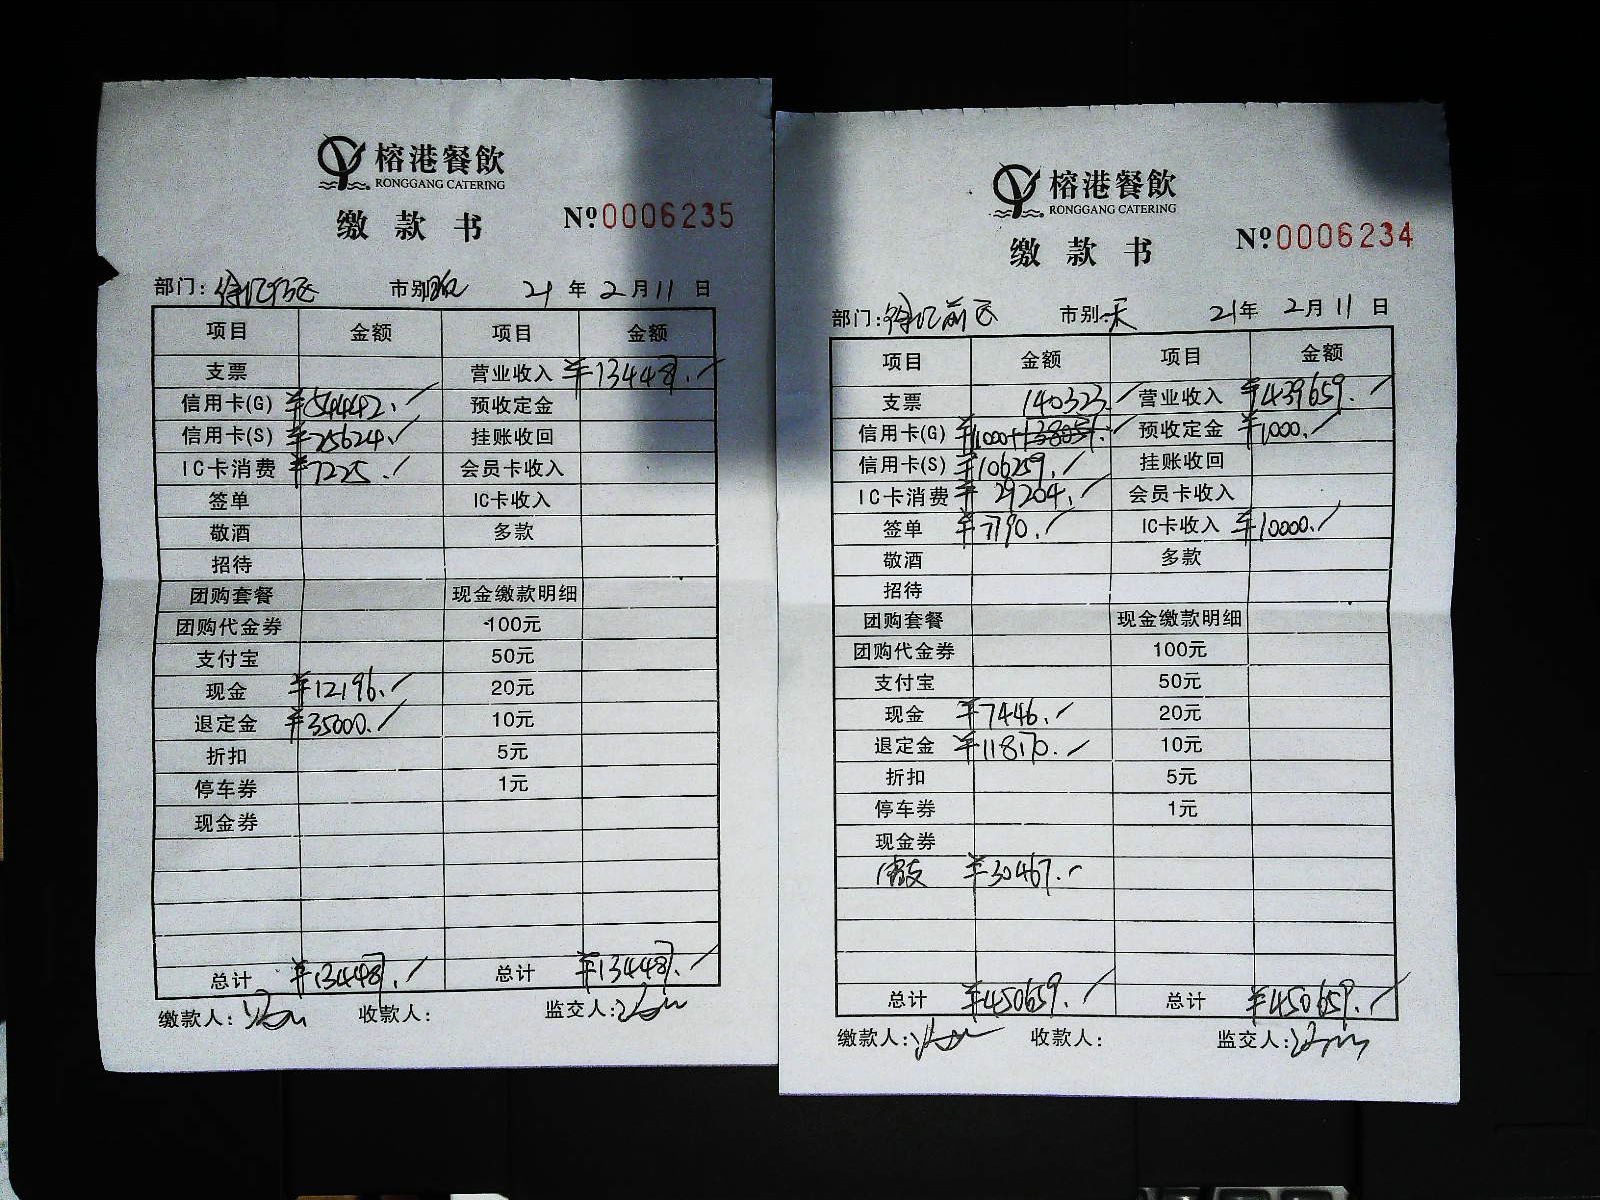 榕港餐飲
RONGGANG CATERING
缴款书 №0006235
部门: 市别 21年2月11日
项目 金额 项目 金额
支票 营业收入 ¥134487.
信用卡(G) ¥54442. 预收定金
信用卡(S) ¥25624. 挂账收回
IC卡消费 ¥7225. 会员卡收入
签单 IC卡收入
敬酒 多款
招待
团购套餐 现金缴款明细
团购代金券 100元
支付宝 50元
现金 ¥12196. 20元
退定金 ¥35000. 10元
折扣 5元
停车券 1元
现金券
总计 ¥134487. 总计 ¥134487.
缴款人: 收款人: 监交人:
榕港餐飲
RONGGANG CATERING
缴款书 №0006234
部门: 市别 21年2月11日
项目 金额 项目 金额
支票 140323. 营业收入 ¥439659.
信用卡(G) ¥1000+ 预收定金 ¥1000.
信用卡(S) ¥106259. 挂账收回
IC卡消费 ¥29204. 会员卡收入
签单 ¥7790. IC卡收入 ¥10000.
敬酒 多款
招待
团购套餐 现金缴款明细
团购代金券 100元
支付宝 50元
现金 ¥7446. 20元
退定金 ¥118170. 10元
折扣 5元
停车券 1元
现金券
¥30467.
总计 ¥450659. 总计 ¥450659.
缴款人: 收款人: 监交人: